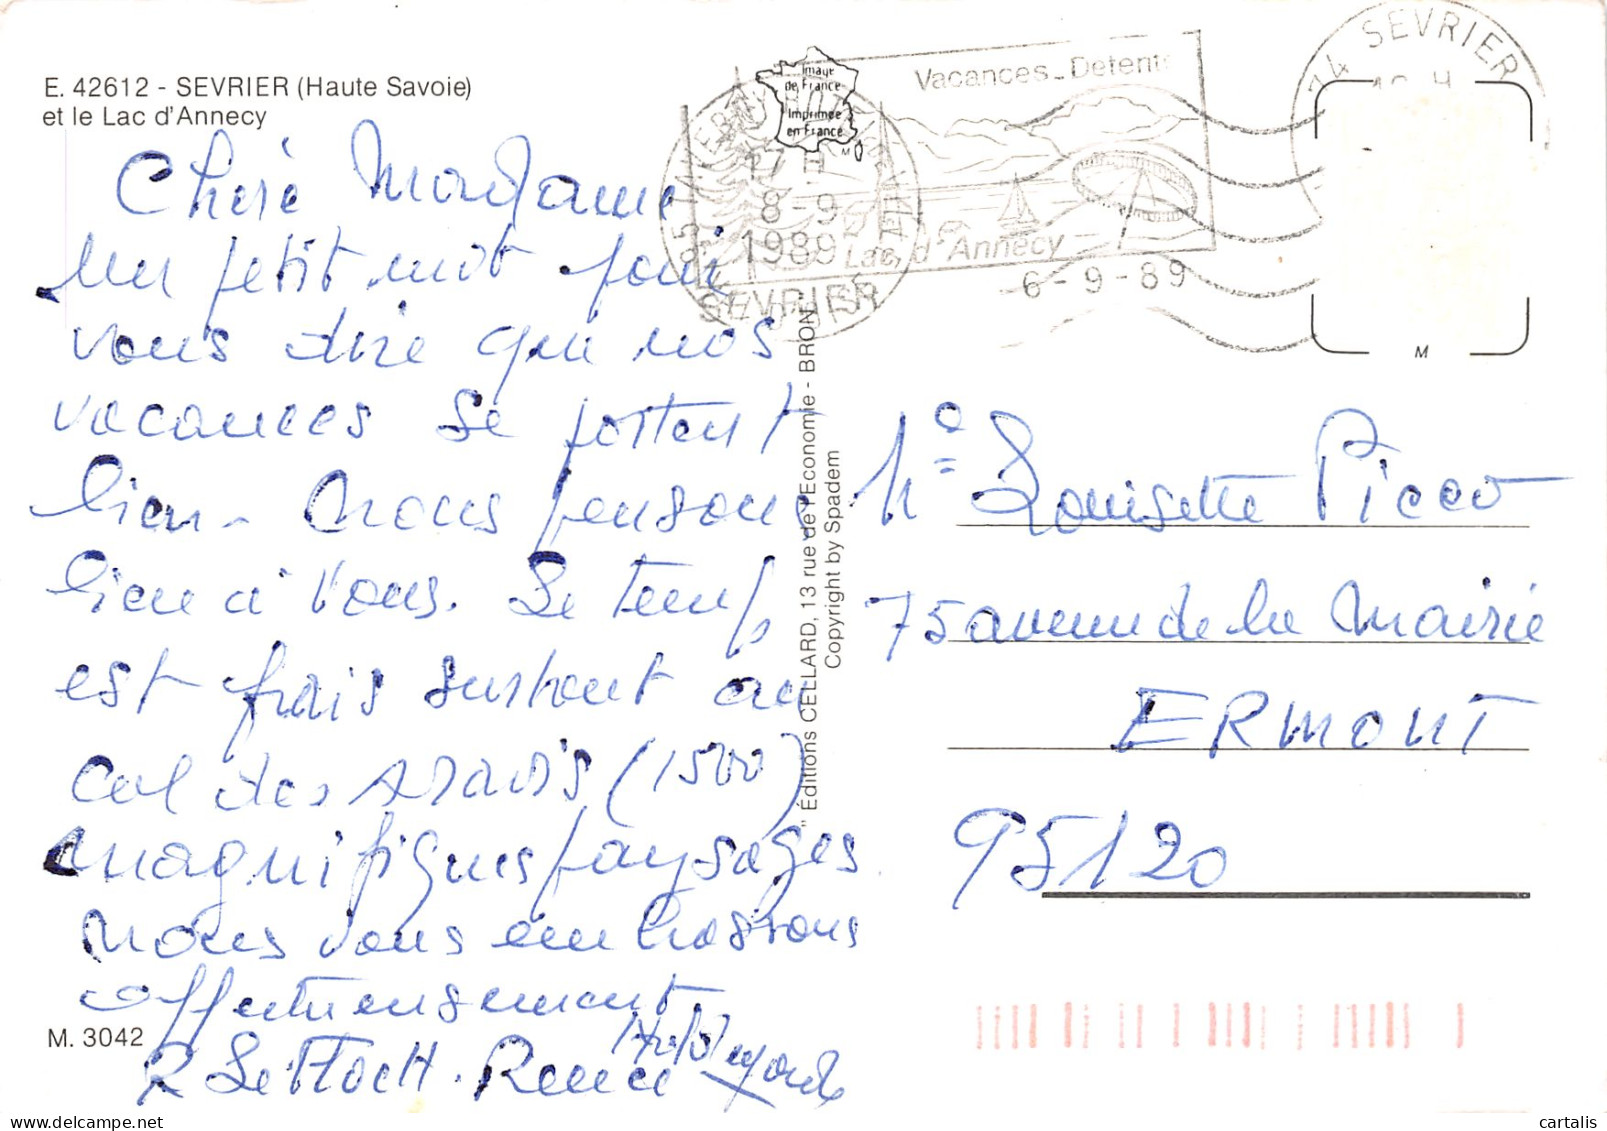 E. 42612 - SEVRIER (Haute Savoie)
et le Lac d'Annecy
Image
de France
Imprimée
en France
M
Vacances - Detente
Lac d'Annecy
74 SEVRIER
6-9-89
17 H
8-9
1989
SEVRIER
M
Chère Madame
un petit mot pour
vous dire que nos
vacances se portent
bien - nous pensons
bien à vous. Le temps
est frais surtout au
col des Aravis (1500)
magnifiques paysages
nous vous embrassons
affectueusement
R Le Floch - Renée
Me Louisette Picco
75 avenue de la Mairie
ERMONT
95120
" Éditions CELLARD, 13 rue de l'Economie - BRON
Copyright by Spadem
M. 3042
cartalis